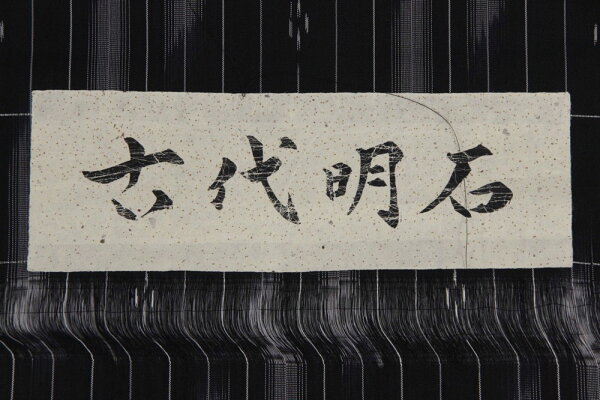 古代明石